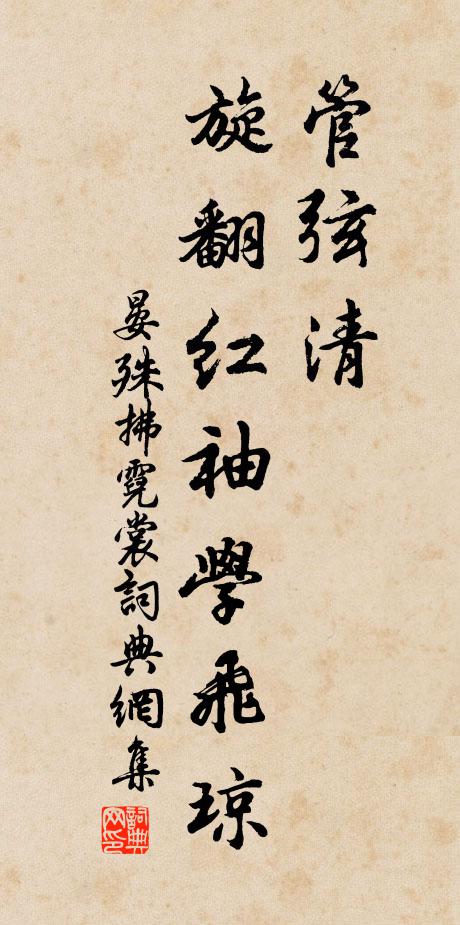 管弦清
旋翻紅袖學飛瓊
晏殊拂霓裳詞典網集
詞典网印